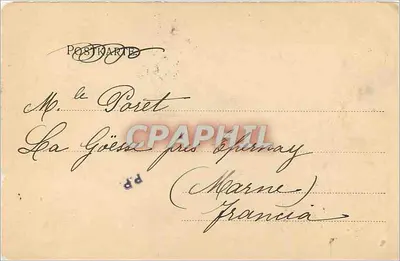 POSTKARTE
M.le Poret
La Goësse près Epernay
P.P.
(Marne)
Francia
CPAPHIL